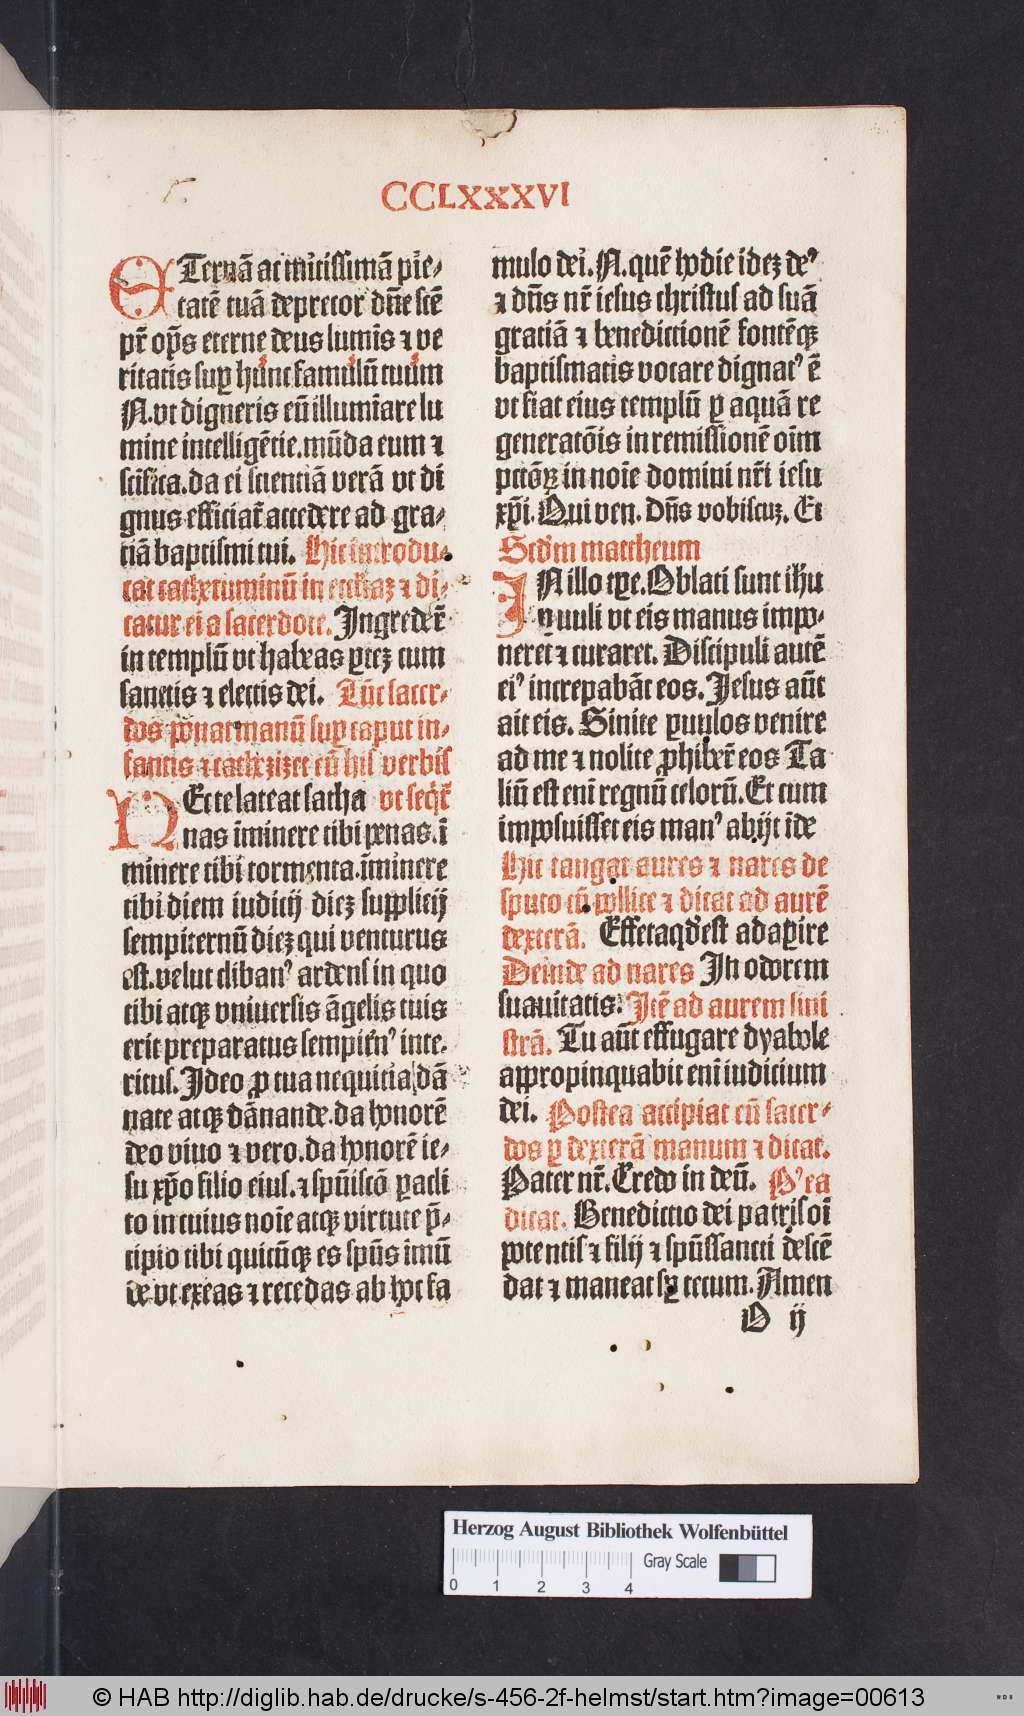 CCLXXXVI
ETernā ac iustissimā pie-
tatē tuā deprecor dñe scē
pr̄ ops̄ eterne deus lumīs ⁊ ve
ritatis sup hunc famulū tuum
N. vt digneris eū illumīare lu
mine intelligētie. mūda eum ⁊
scīfica. da ei scientiā verā vt di
gnus efficiat̄ accedere ad gra-
tiā baptismi tui. Hic introdu-
cat cathecuminū in eccliaꝫ ⁊ di-
catur ei a sacerdote. Ingreder̄
in templū vt habeas pteꝫ cum
sanctis ⁊ electis dei. Tūc sacer-
dos ponat manū sup caput in-
fantis ⁊ cathezizet eū his verbis
NEc te lateat satha vt seq̄t̄
nas īminere tibi penas. ī
minere tibi tormenta. īminere
tibi diem iudicij dieꝫ supplicij
sempiternū dieꝫ qui venturus
est. velut cliban⁹ ardens in quo
tibi atqꝫ vniuersis āgelis tuis
erit preparatus sempitern⁹ inte-
ritus. Ideo ꝓ tua nequicia dā
nate atqꝫ dānande. da honorē
deo viuo ⁊ vero. da honorē ie-
su xp̄o filio eius. ⁊ spūiscō pacli
to in cuius noīe atqꝫ virtute p̄-
cipio tibi quicūqꝫ es spūs īmū
de vt exeas ⁊ recedas ab hoc fa
mulo dei. N. quē hodie ideꝫ de⁹
⁊ dn̄s nr̄ iesus christus ad suā
gratiā ⁊ benedictionē fontēqꝫ
baptismatis vocare dignat⁹ ē
vt fiat eius templū ꝑ aquā re
generatōis in remissionē oīm
pctōꝝ in noīe domini nr̄i iesu
xp̄i. Qui ven. Dn̄s vobiscuꝫ. Et
Scdm mattheum
IN illo tꝑe. Oblati sunt ihu
ꝑuuli vt eis manus impo-
neret ⁊ curaret. Discipuli autē
ei⁹ increpabāt eos. Jesus aūt
ait eis. Sinite ꝑuulos venire
ad me ⁊ nolite ꝓhiber̄ eos Ta
liū est enī regnū celorū. Et cum
imposuisset eis man⁹ abijt īde
Hic tangat aures ⁊ nares de
sputo cū pollice ⁊ dicat ad aurē
dexterā. Effeta qd' est adapire
Deinde ad nares In odorem
suauitatis. Itē ad aurem sini
strā. Tu aūt effugare dyabole
appropinquabit enī iudicium
dei. Postea accipiat eū sacer-
dos ꝑ dexterā manum ⁊ dicat.
Pater nr̄. Credo in deū. P⁹ ea
dicat. Benedictio dei patris oī
potentis ⁊ filij ⁊ spūssancti descē
dat ⁊ maneat sꝑ tecum. Amen
O ij
Herzog August Bibliothek Wolfenbüttel
Gray Scale
0 1 2 3 4
© HAB http://diglib.hab.de/drucke/s-456-2f-helmst/start.htm?image=00613